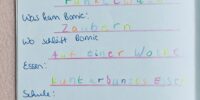 Was kann Bonnie:
Zaubern
Wo schläft Bonnie
Auf einer Wolke
Essen:
Kunterbuntes Eis
Schule: